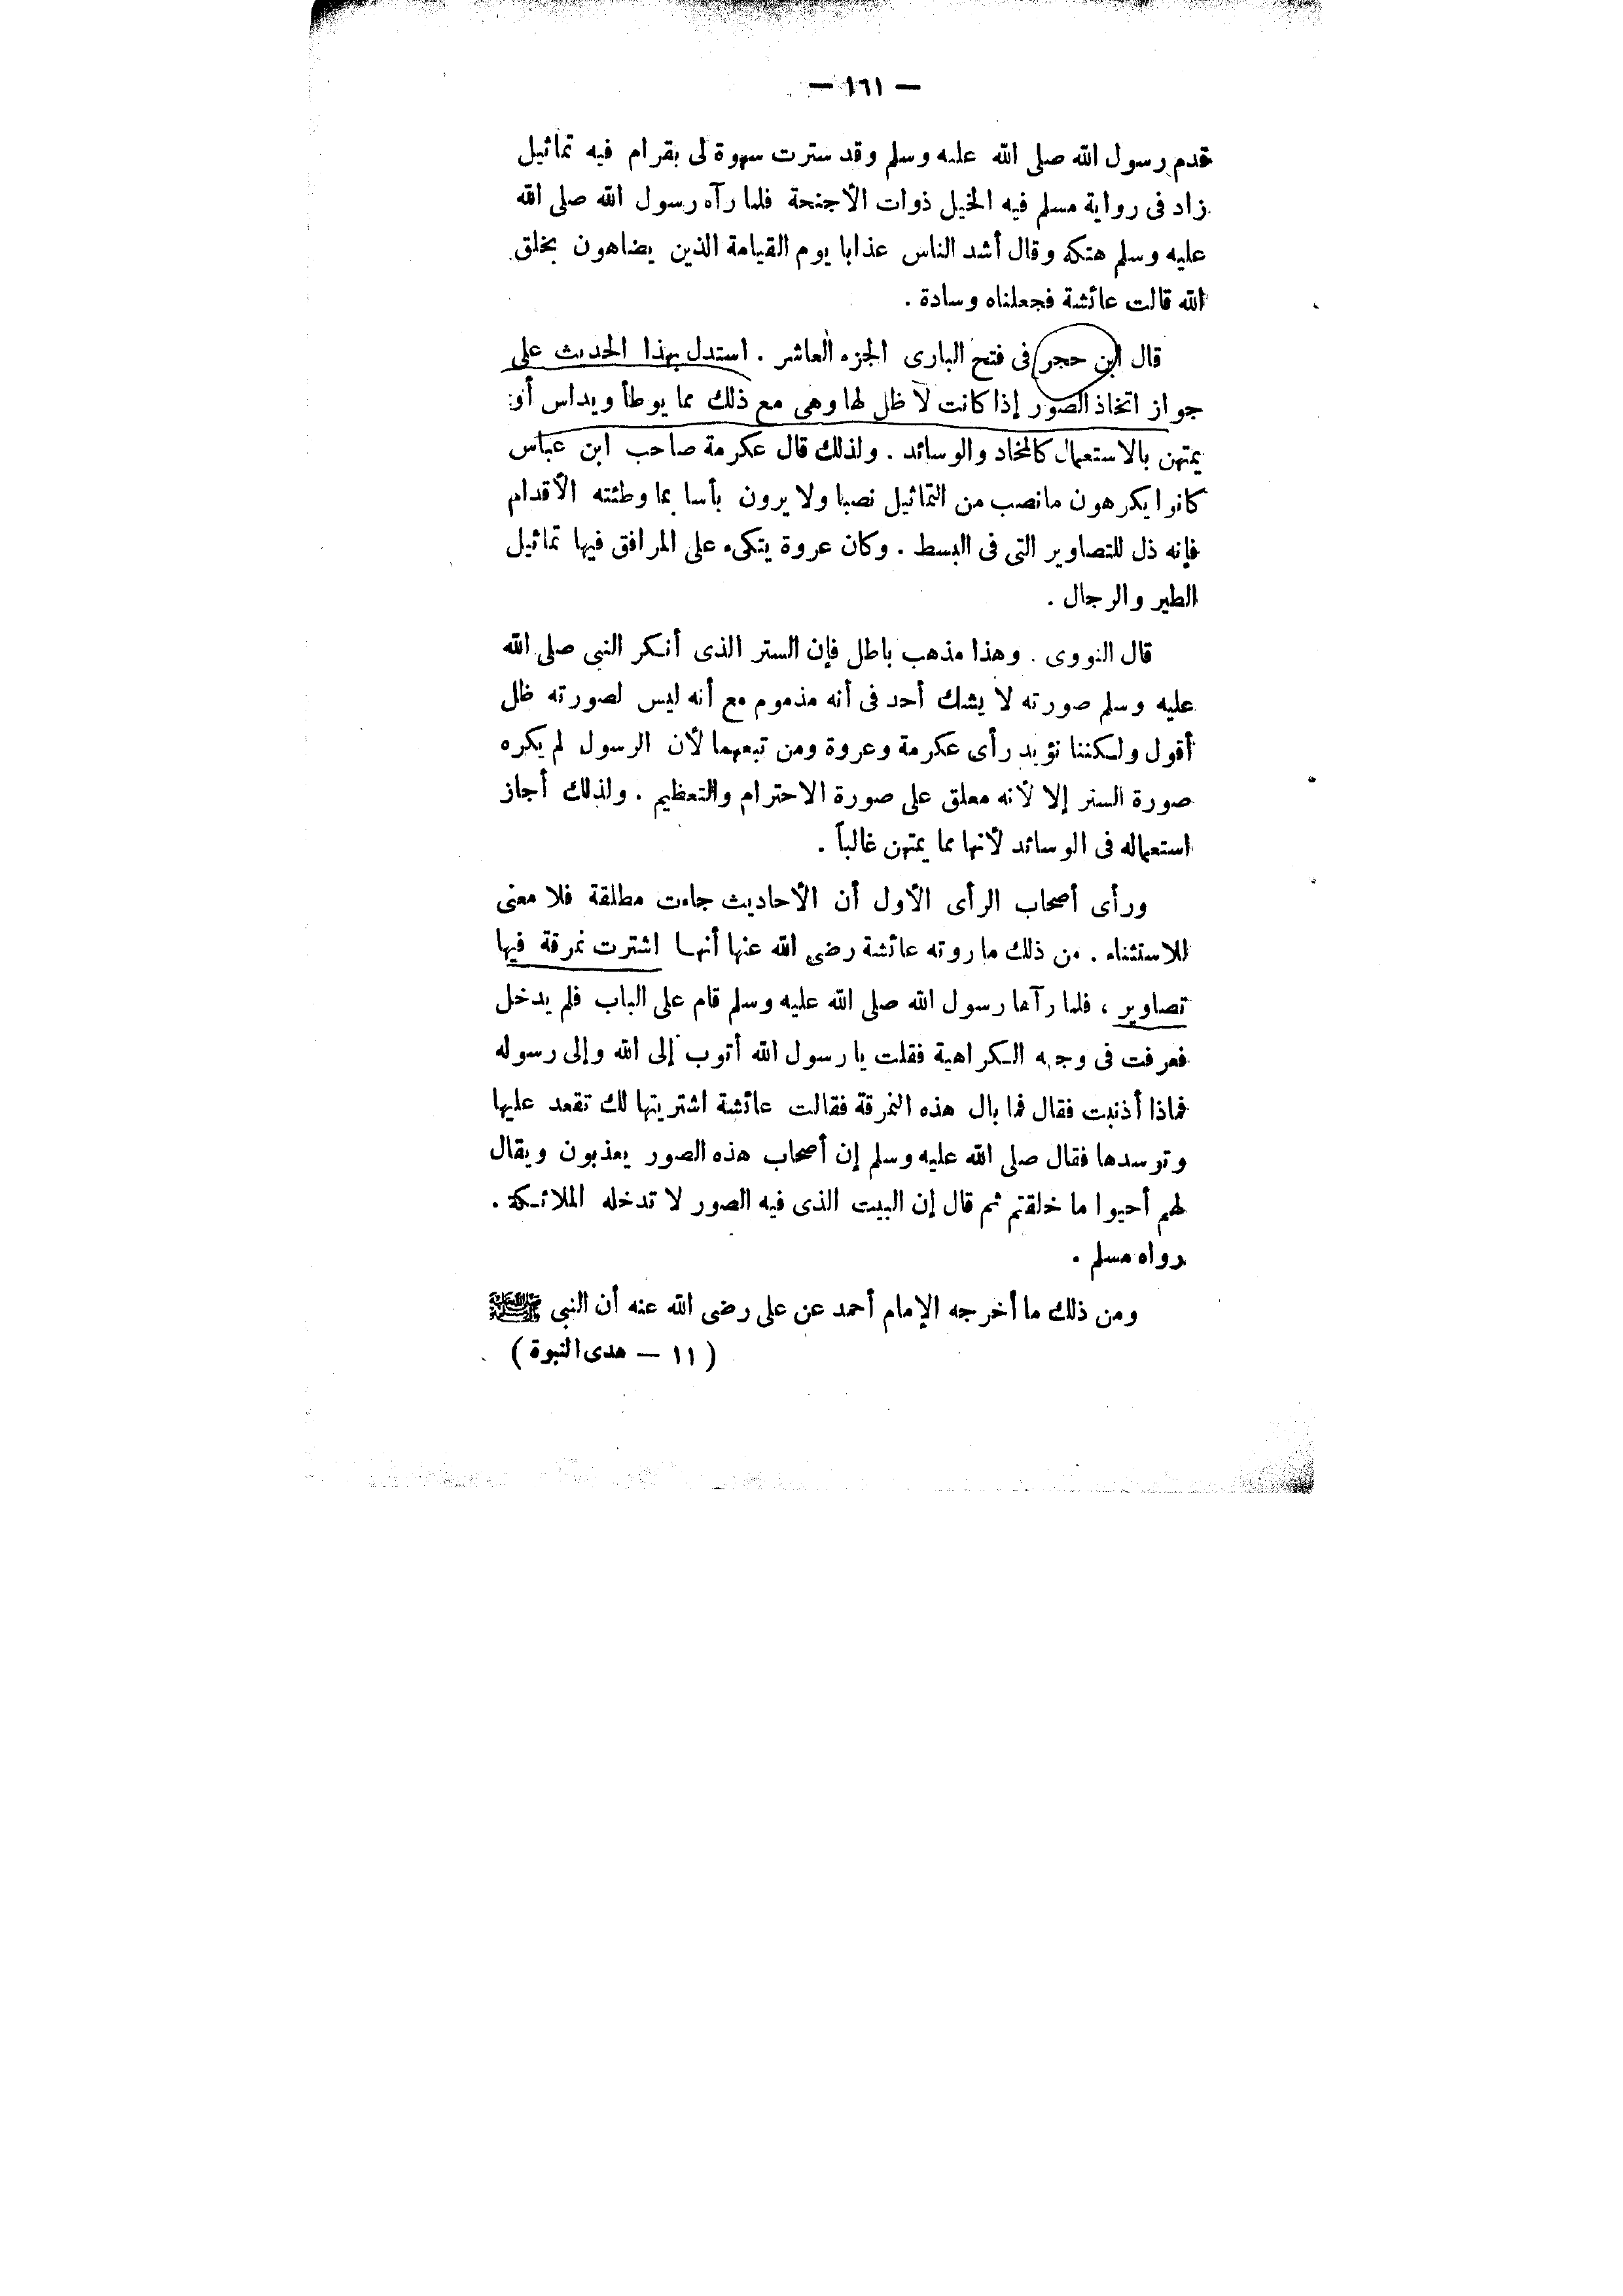 — ١٦١ —
قدم رسول الله صلى الله عليه وسلم وقد سترت سهوة لى بقرام فيه تماثيل
زاد فى رواية مسلم فيه الخيل ذوات الأجنحة فلما رآه رسول الله صلى الله
عليه وسلم هتكه وقال أشد الناس عذابا يوم القيامة الذين يضاهون بخلق
الله قالت عائشة فجعلناه وسادة .
قال ابن حجر فى فتح البارى الجزء العاشر . استدل بهذا الحديث على
جواز اتخاذ الصور إذا كانت لا ظل لها وهى مع ذلك مما يوطأ ويداس أو
يمتهن بالاستعمال كالمخاد والوسائد . ولذلك قال عكرمة صاحب ابن عباس
كانوا يكرهون مانصب من التماثيل نصبا ولا يرون بأسا بما وطئته الأقدام
فإنه ذل للتصاوير التى فى البسط . وكان عروة يتكىء على المرافق فيها تماثيل
الطير والرجال .
قال النووى . وهذا مذهب باطل فإن الستر الذى أنكر النبى صلى الله
عليه وسلم صورته لا يشك أحد فى أنه مذموم مع أنه ليس لصورته ظل
أقول ولكننا نؤيد رأى عكرمة وعروة ومن تبعهما لأن الرسول لم يكره
صورة الستر إلا لأنه معلق على صورة الاحترام والتعظيم . ولذلك أجاز
استعماله فى الوسائد لأنها مما يمتهن غالباً .
ورأى أصحاب الرأى الأول أن الأحاديث جاءت مطلقة فلا معنى
للاستثناء . من ذلك ما روته عائشة رضى الله عنها أنها اشترت نمرقة فيها
تصاوير ، فلما رآها رسول الله صلى الله عليه وسلم قام على الباب فلم يدخل
فعرفت فى وجهه الكراهية فقلت يا رسول الله أتوب إلى الله وإلى رسوله
فماذا أذنبت فقال فما بال هذه النمرقة فقالت عائشة اشتريتها لك تقعد عليها
وتوسدها فقال صلى الله عليه وسلم إن أصحاب هذه الصور يعذبون ويقال
لهم أحيوا ما خلقتم ثم قال إن البيت الذى فيه الصور لا تدخله الملائكة .
رواه مسلم .
ومن ذلك ما أخرجه الإمام أحمد عن على رضى الله عنه أن النبى ﷺ
( ١١ — هدى النبوة )